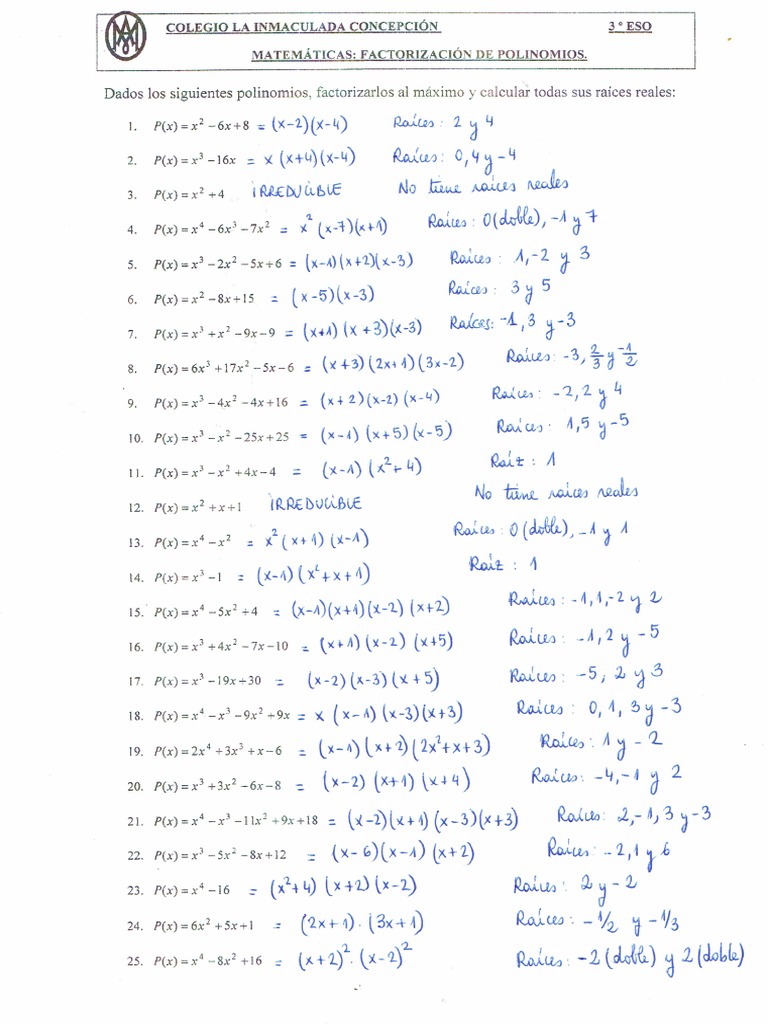 COLEGIO LA INMACULADA CONCEPCIÓN 3º ESO
MATEMÁTICAS: FACTORIZACIÓN DE POLINOMIOS.
Dados los siguientes polinomios, factorizarlos al máximo y calcular todas sus raíces reales:
1. P(x) = x² − 6x + 8 = (x−2)(x−4) Raíces: 2 y 4
2. P(x) = x³ − 16x = x (x+4)(x−4) Raíces: 0, 4 y −4
3. P(x) = x² + 4 IRREDUCIBLE No tiene raíces reales
4. P(x) = x⁴ − 6x³ − 7x² = x² (x−7)(x+1) Raíces: 0(doble), −1 y 7
5. P(x) = x³ − 2x² − 5x + 6 = (x−1)(x+2)(x−3) Raíces: 1, −2 y 3
6. P(x) = x² − 8x + 15 = (x−5)(x−3) Raíces: 3 y 5
7. P(x) = x³ + x² − 9x − 9 = (x+1)(x+3)(x−3) Raíces: −1, 3 y −3
8. P(x) = 6x³ + 17x² − 5x − 6 = (x+3)(2x+1)(3x−2) Raíces: −3, 2/3 y −1/2
9. P(x) = x³ − 4x² − 4x + 16 = (x+2)(x−2)(x−4) Raíces: −2, 2 y 4
10. P(x) = x³ − x² − 25x + 25 = (x−1)(x+5)(x−5) Raíces: 1, 5 y −5
11. P(x) = x³ − x² + 4x − 4 = (x−1)(x²+4) Raíz: 1
12. P(x) = x² + x + 1 IRREDUCIBLE No tiene raíces reales
13. P(x) = x⁴ − x² = x² (x+1)(x−1) Raíces: 0(doble), −1 y 1
14. P(x) = x³ − 1 = (x−1)(x²+x+1) Raíz: 1
15. P(x) = x⁴ − 5x² + 4 = (x−1)(x+1)(x−2)(x+2) Raíces: −1, 1, −2 y 2
16. P(x) = x³ + 4x² − 7x − 10 = (x+1)(x−2)(x+5) Raíces: −1, 2 y −5
17. P(x) = x³ − 19x + 30 = (x−2)(x−3)(x+5) Raíces: −5, 2 y 3
18. P(x) = x⁴ − x³ − 9x² + 9x = x (x−1)(x−3)(x+3) Raíces: 0, 1, 3 y −3
19. P(x) = 2x⁴ + 3x³ + x − 6 = (x−1)(x+2)(2x²+x+3) Raíces: 1 y −2
20. P(x) = x³ + 3x² − 6x − 8 = (x−2)(x+1)(x+4) Raíces: −4, −1 y 2
21. P(x) = x⁴ − x³ − 11x² + 9x + 18 = (x−2)(x+1)(x−3)(x+3) Raíces: 2, −1, 3 y −3
22. P(x) = x³ − 5x² − 8x + 12 = (x−6)(x−1)(x+2) Raíces: −2, 1 y 6
23. P(x) = x⁴ − 16 = (x²+4)(x+2)(x−2) Raíces: 2 y −2
24. P(x) = 6x² + 5x + 1 = (2x+1)·(3x+1) Raíces: −1/2 y −1/3
25. P(x) = x⁴ − 8x² + 16 = (x+2)²·(x−2)² Raíces: −2 (doble) y 2 (doble)